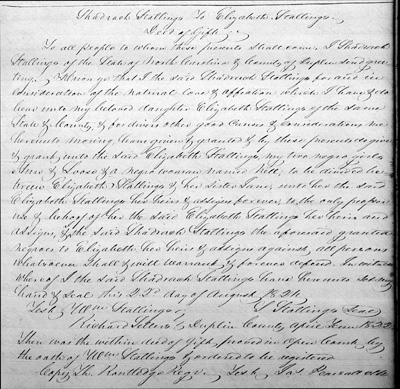 Shadrack Stallings To Elizabeth Stallings
Deed of Gift
To all people to whom these presents shall come, I Shadrack
Stallings of the State of North Carolina & County of Duplin send gree
ting. Know ye that I the said Shadrack Stallings for and in
consideration of the natural love & affection which I have & do
bear unto my beloved daughter Elizabeth Stallings of the same
State & County, & for divers other good causes & considerations me
hereunto moving have given & granted & by these presents do give
& grant, unto the said Elizabeth Stallings, my two negro girls
& a negro woman named to be divided be
tween Elizabeth Stallings & her Sister Jane, unto her the said
Elizabeth Stallings her heirs & assigns forever, to the only proper
use & behoof of her the said Elizabeth Stallings her heirs and
assigns, & the said Shadrack Stallings the aforesaid granted
negroes to Elizabeth her heirs & assigns against, all persons
whatsoever shall & will warrant, & forever defend. In witness
whereof I the said Shadrack Stallings have hereunto set my
hand & seal this day of August
Test Wm Stallings, S Stallings Seal
Richard Duplin County
Then was the within deed of Gift, proved in open Court, by
the oath of Wm Stallings & ordered to be registered
Copy Th Routledge Regr. Test, Jas Pearsall